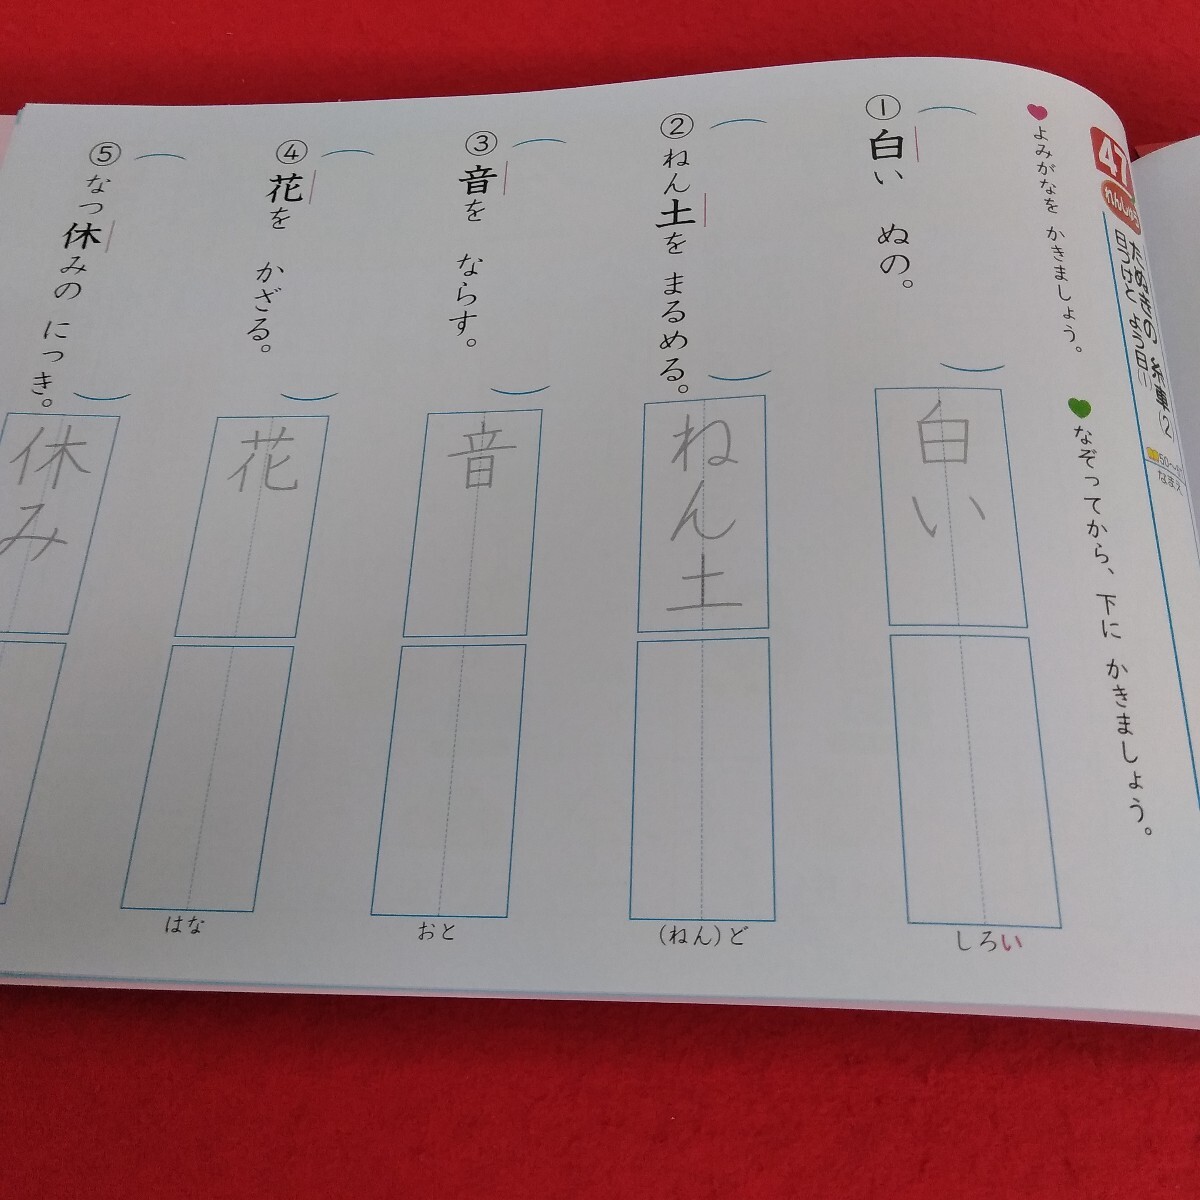 47
れんしゅう
たぬきの 糸車(2)
日づけと よう日(1)
なまえ
よみがなを かきましょう。
なぞってから、下に かきましょう。
① 白い ぬの。
白い
しろい
② ねん土を まるめる。
ねん土
(ねん)ど
③ 音を ならす。
音
おと
④ 花を かざる。
花
はな
⑤ なつ休みの にっき。
休み